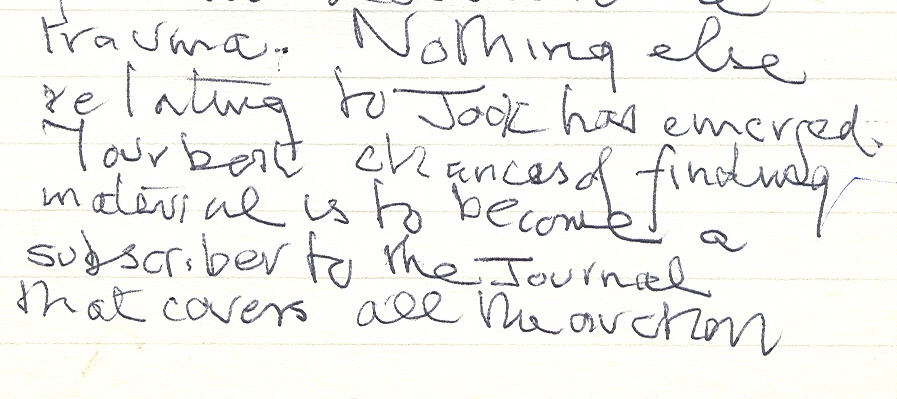 trauma. Nothing else
relating to Jock has emerged.
Your best chances of finding
material is to become a
subscriber to the Journal
that covers all the auction